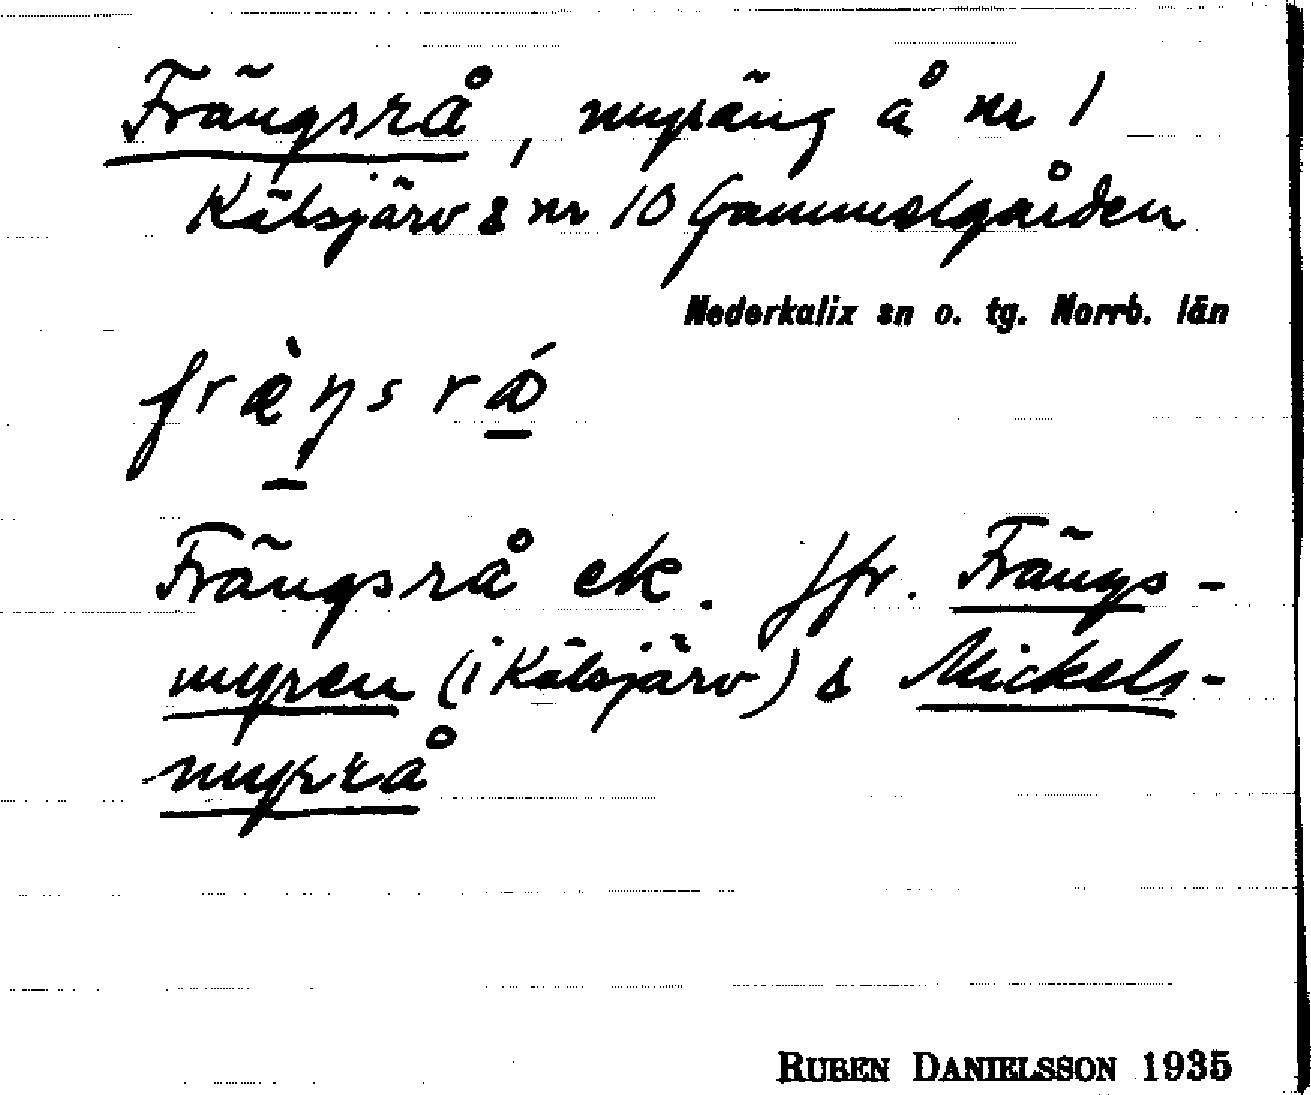 Frängsrå, myräng å nr 1
Kälsjärv & nr 10 Gammelgården
Nederkalix sn o. tg. Norrb. län
fræ̀ŋs rǻ
Frängsrå ek. Jfr. Frängs-
myren (i Kälsjärv) & Mickels-
myrrå
RUBEN DANIELSSON 1935